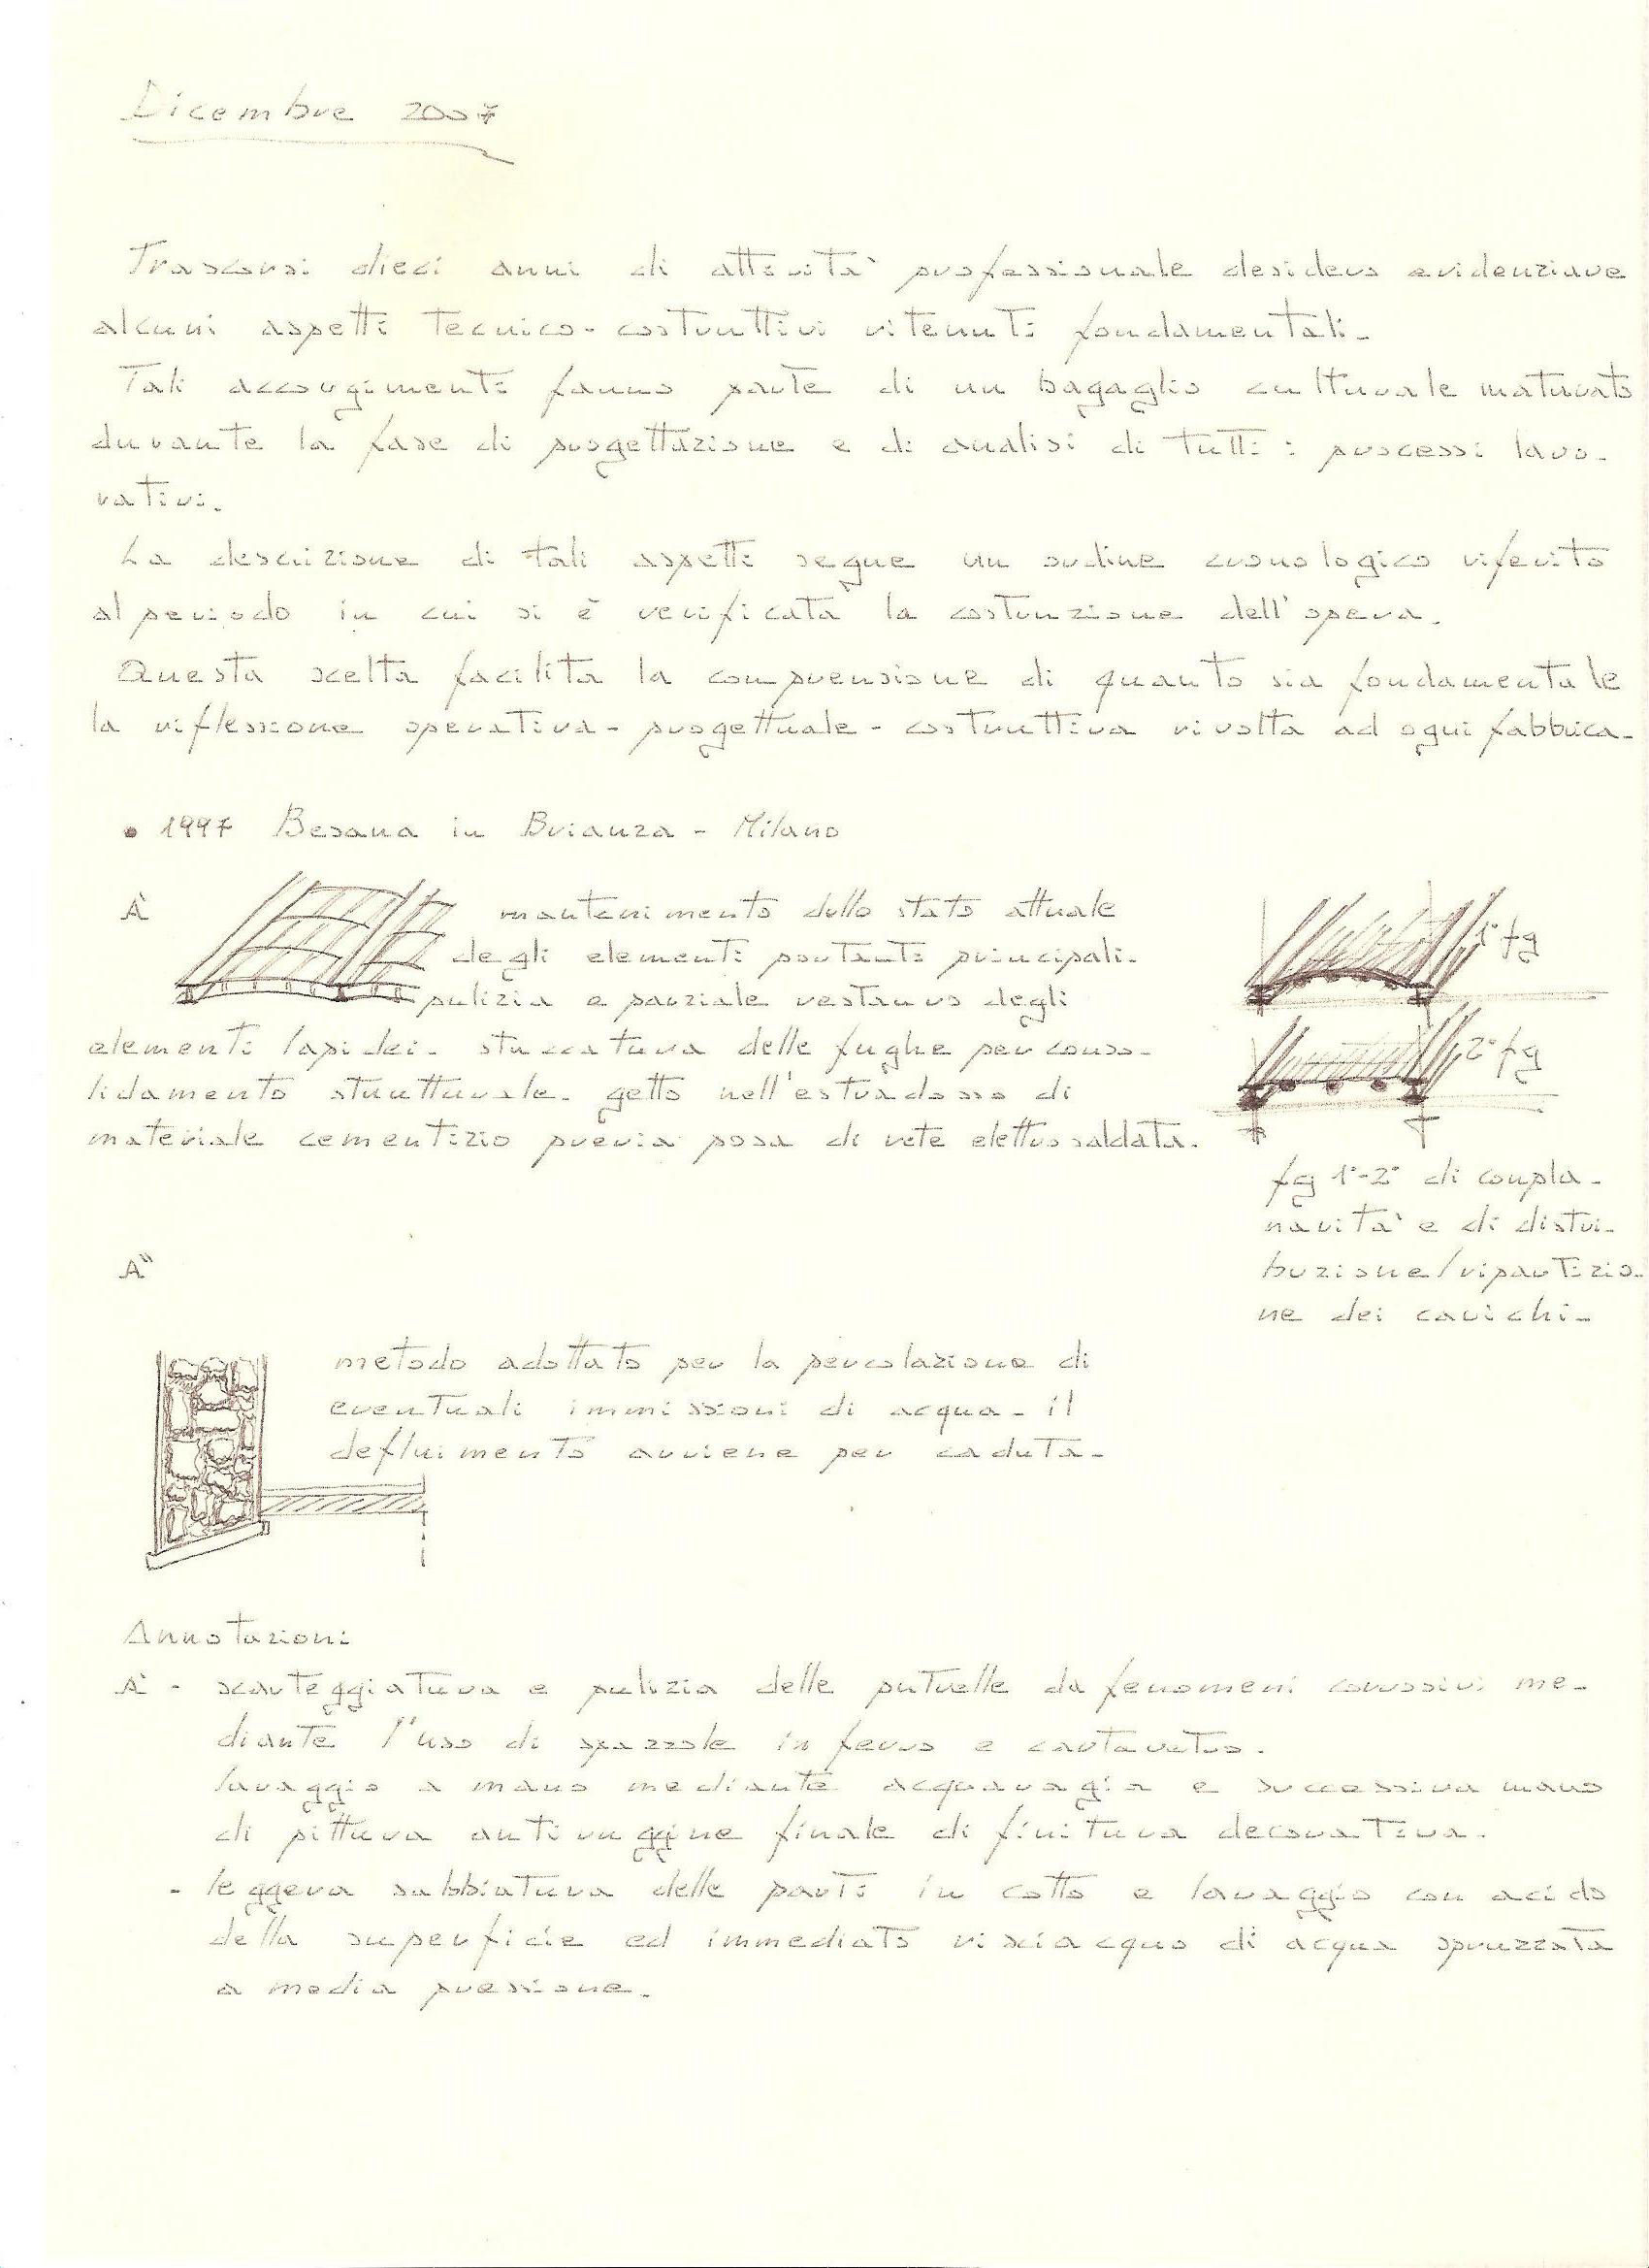 Dicembre 2007
Trascorsi dieci anni di attività professionale desidero evidenziare
alcuni aspetti tecnico-costruttivi ritenuti fondamentali.
Tali accorgimenti fanno parte di un bagaglio culturale maturato
durante la fase di progettazione e di analisi di tutti i processi lavo-
rativi.
La descrizione di tali aspetti segue un ordine cronologico riferito
al periodo in cui si è verificata la costruzione dell'opera.
Questa scelta facilita la comprensione di quanto sia fondamentale
la riflessione operativa-progettuale-costruttiva rivolta ad ogni fabbrica.
• 1997 Besana in Brianza - Milano
A'
mantenimento dello stato attuale
degli elementi portanti principali.
pulizia e parziale restauro degli
elementi lapidei. stuccatura delle fughe per conso-
lidamento strutturale. getto nell'estradosso di
materiale cementizio previa posa di rete elettrosaldata.
1° fg
2° fg
fg 1°-2° di compla-
narità e di distri-
buzione/ripartizio-
ne dei carichi.
A"
metodo adottato per la percolazione di
eventuali immissioni di acqua. il
defluimento avviene per caduta.
Annotazioni
A' - scarteggiatura e pulizia delle putrelle da fenomeni corrosivi me-
diante l'uso di spazzole in ferro e cartavetro.
lavaggio a mano mediante acquaragia e successiva mano
di pittura antiruggine finale di finitura decorativa.
- leggera sabbiatura delle parti in cotto e lavaggio con acido
della superficie ed immediato risciacquo di acqua spruzzata
a media pressione.